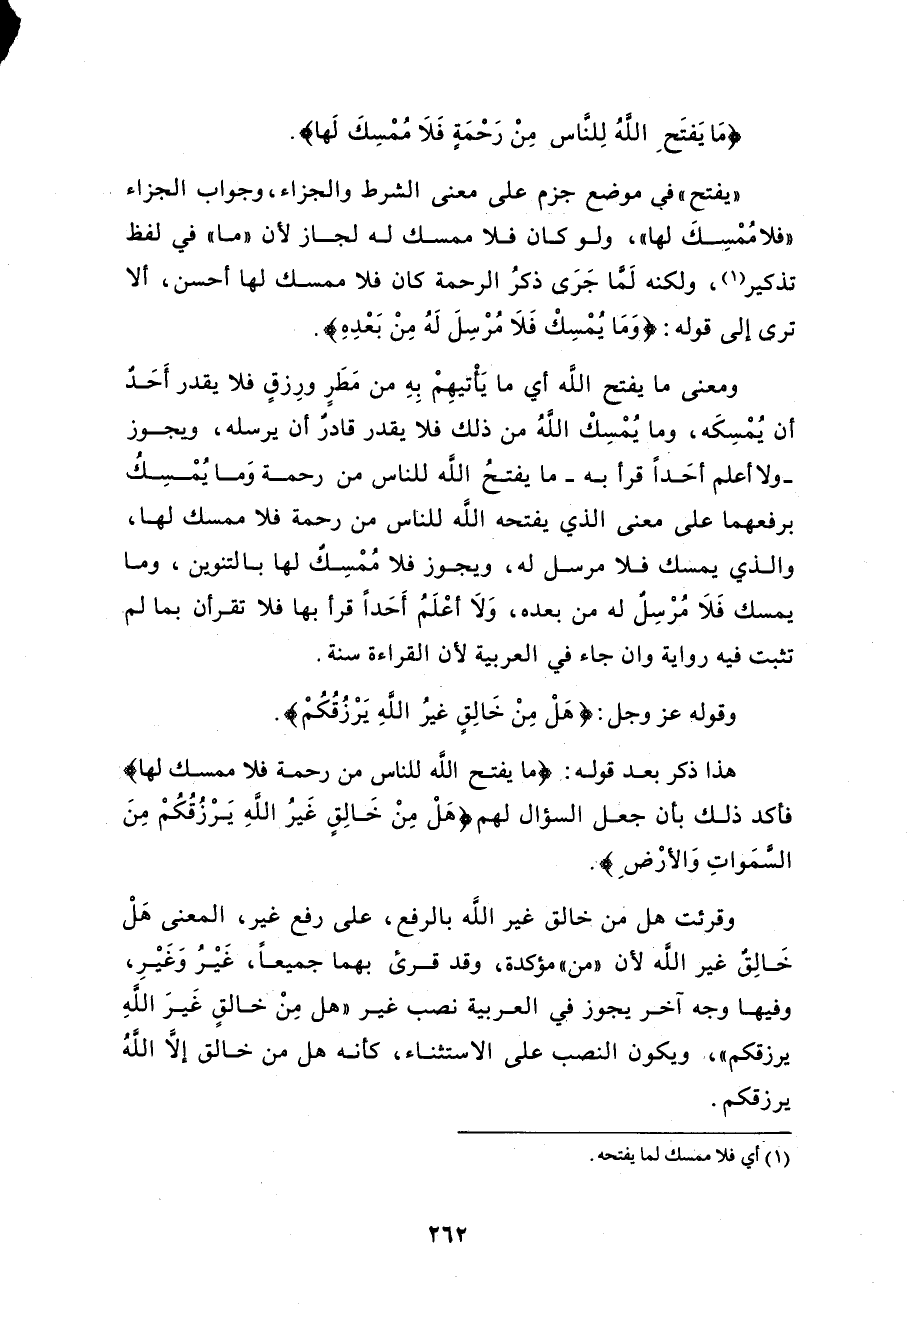 ﴿مَا يَفتَحِ اللَّهُ لِلنَّاس مِنْ رَحْمَةٍ فَلَا مُمْسِكَ لَها﴾.
«يفتح» في موضع جزم على معنى الشرط والجزاء، وجواب الجزاء
«فلا مُمْسِـكَ لها»، ولو كان فلا ممسك له لجاز لأن «ما» في لفظ
تذكير(١)، ولكنه لَمَّا جَرَى ذكرُ الرحمة كان فلا ممسك لها أحسن، ألا
ترى إلى قوله: ﴿وَمَا يُمْسِكْ فَلَا مُرْسِلَ لَهُ مِنْ بَعْدِهِ﴾.
ومعنى ما يفتح اللَّه أي ما يَأْتيهِمْ بِهِ من مَطَرٍ ورِزقٍ فلا يقدر أَحَدٌ
أن يُمْسِكَه، وما يُمْسِكْ اللَّهُ من ذلك فلا يقدر قادرٌ أن يرسله، ويجوز
-ولا أعلم أحَداً قرأ به - ما يفتحُ اللَّه للناس من رحمة وَما يُمْسِكُ
برفعهما على معنى الذي يفتحه اللَّه للناس من رحمة فلا ممسك لها،
والذي يمسك فلا مرسل له، ويجوز فلا مُمْسِكٌ لها بالتنوين، وما
يمسك فَلَا مُرْسِلٌ له من بعده، وَلَا أعْلَمُ أَحَداً قرأ بها فلا تقرأن بما لم
تثبت فيه رواية وان جاء في العربية لأن القراءة سنة.
وقوله عز وجل: ﴿هَلْ مِنْ خَالِقٍ غيرُ اللَّهِ يَرْزُقُكُمْ﴾.
هذا ذكر بعد قوله: ﴿ما يفتح اللَّه للناس من رحمة فلا ممسك لها﴾
فأكد ذلك بأن جعل السؤال لهم ﴿هَلْ مِنْ خَالِقٍ غَيرُ اللَّهِ يَرْزُقُكُمْ مِنَ
السَّمَواتِ وَالأرْضِ﴾.
وقرئت هل من خالق غير اللَّه بالرفع، على رفع غير، المعنى هَلْ
خَالِقٌ غير اللَّه لأن «من» مؤكدة، وقد قرئ بهما جميعاً، غَيْرُ وَغَيْرِ،
وفيها وجه آخر يجوز في العربية نصب غير «هل مِنْ خالقٍ غَيرَ اللَّهِ
يرزقكم»، ويكون النصب على الاستثناء، كأنه هل من خالق إلَّا اللَّهُ
يرزقكم.
(١) أي فلا ممسك لما يفتحه.
٢٦٢